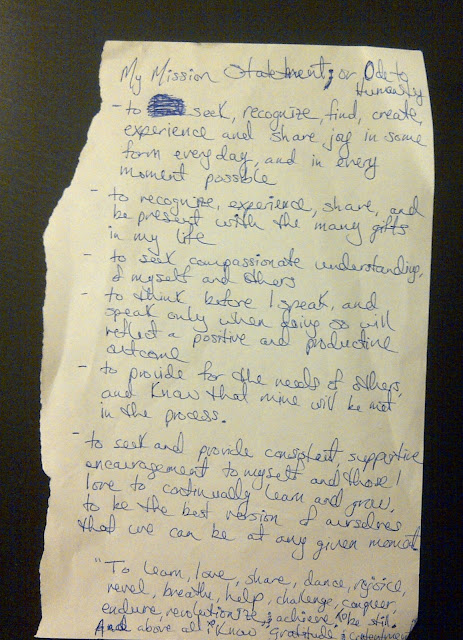 My Mission Statement; or Ode to
Humanity
- to seek, recognize, find, create,
experience and share joy in some
form everyday, and in every
moment possible
- to recognize, experience, share, and
be present with the many gifts
in my life
- to seek compassionate understanding,
of myself and others
- to think before I speak, and
speak only when doing so will
reflect a positive and productive
outcome
- to provide for the needs of others,
and know that mine will be met
in the process.
- to seek and provide consistent, supportive
encouragement to myself and those I
love to continually learn and grow,
to be the best version of ourselves
that we can be at any given moment
"To learn, love, share, dance, rejoice,
revel, breathe, help, challenge, conquer,
endure, revolutionize, achieve, to be still.
And above all: Know gratitude & contentment